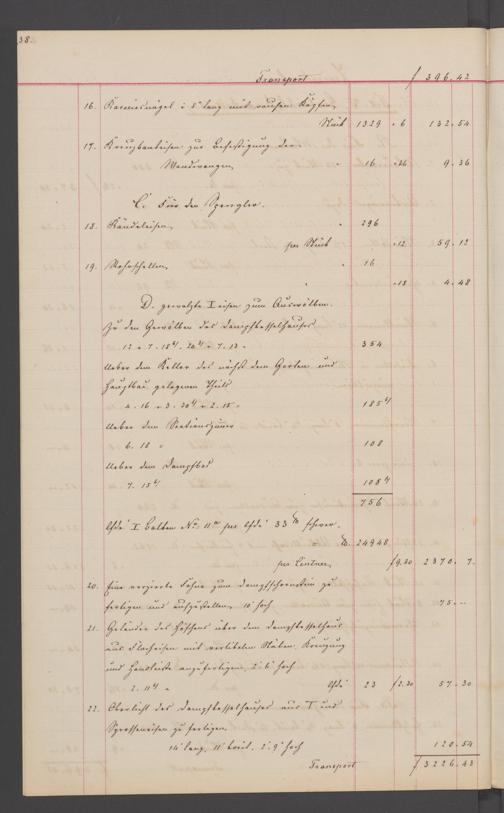 38.
Transport f 396.42
16. Karniesnägel à 5" lang mit rauhen Köpfen,
Stück 1329 " 6 132.54
17. Kreuzbandeisen zur Befestigung der
Wandrungen, " 16 " 36 9.36
C. Für den Spengler.
18. Kändeleisen, " 296
per Stück " 12 59.12
19. Rohrschellen, " 16
" " 18 4.48
D. gewalzte I eisen zum Auswölben.
Zu den Gewölben des Dampfkesselhauses
12 " 7. 18'4" 20'4" 7. 13 " 354
Ueber dem Keller des nächst dem Garten und
Hauptbau gelegenen Theils
4. 16 " 3. 30'4" 2. 15 " 185'4"
Ueber dem Sectionszimmer
6. 18 " 108
Ueber dem Dampfbad
7. 15'4" 108'4"
756
lfde' I balken No. 11 per lfde' 33 ℔ schwer,
℔. 24948
per Centner, f 9.30 2370. 7.
20. Eine verzierte Fahne zum Dampfschornstein zu
fertigen und aufzustellen, 10' hoch 75.--
21. Geländer des Höfchens über dem Dampfkesselhaus
aus Flacheisen mit vertikalen Stäben, Kreuzung
und Handleiste anzufertigen, 2'6" hoch
2. 11'4" " lfde' 23 f 2.30 57.30
22. Oberlicht des Dampfkesselhauses aus T und
Sprosseneisen zu fertigen
14' lang, 11' breit, 2'9" hoch 120.54
Transport f 3226.43